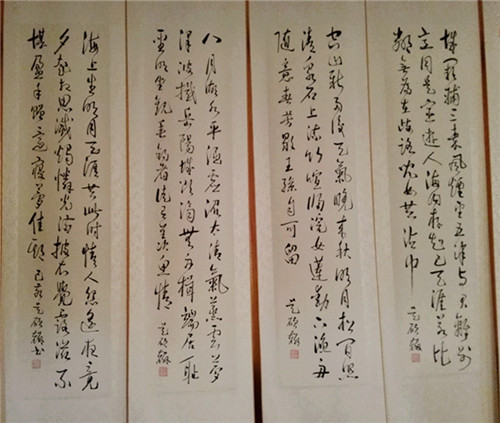 城闕輔三秦風煙望五津與君離別
意同是宦遊人海內存知己天涯若比
鄰無為在歧路兒女共沾巾
空山新雨後天氣晚來秋明月松間照
清泉石上流竹喧歸浣女蓮動下漁舟
隨意春芳歇王孫自可留
八月湖水平涵虛混太清氣蒸雲夢
澤波撼岳陽城欲濟無舟楫端居恥
聖明坐觀垂釣者徒有羨魚情
海上生明月天涯共此時情人怨遙夜竟
夕起相思滅燭憐光滿披衣覺露滋不
堪盈手贈還寢夢佳期 己亥